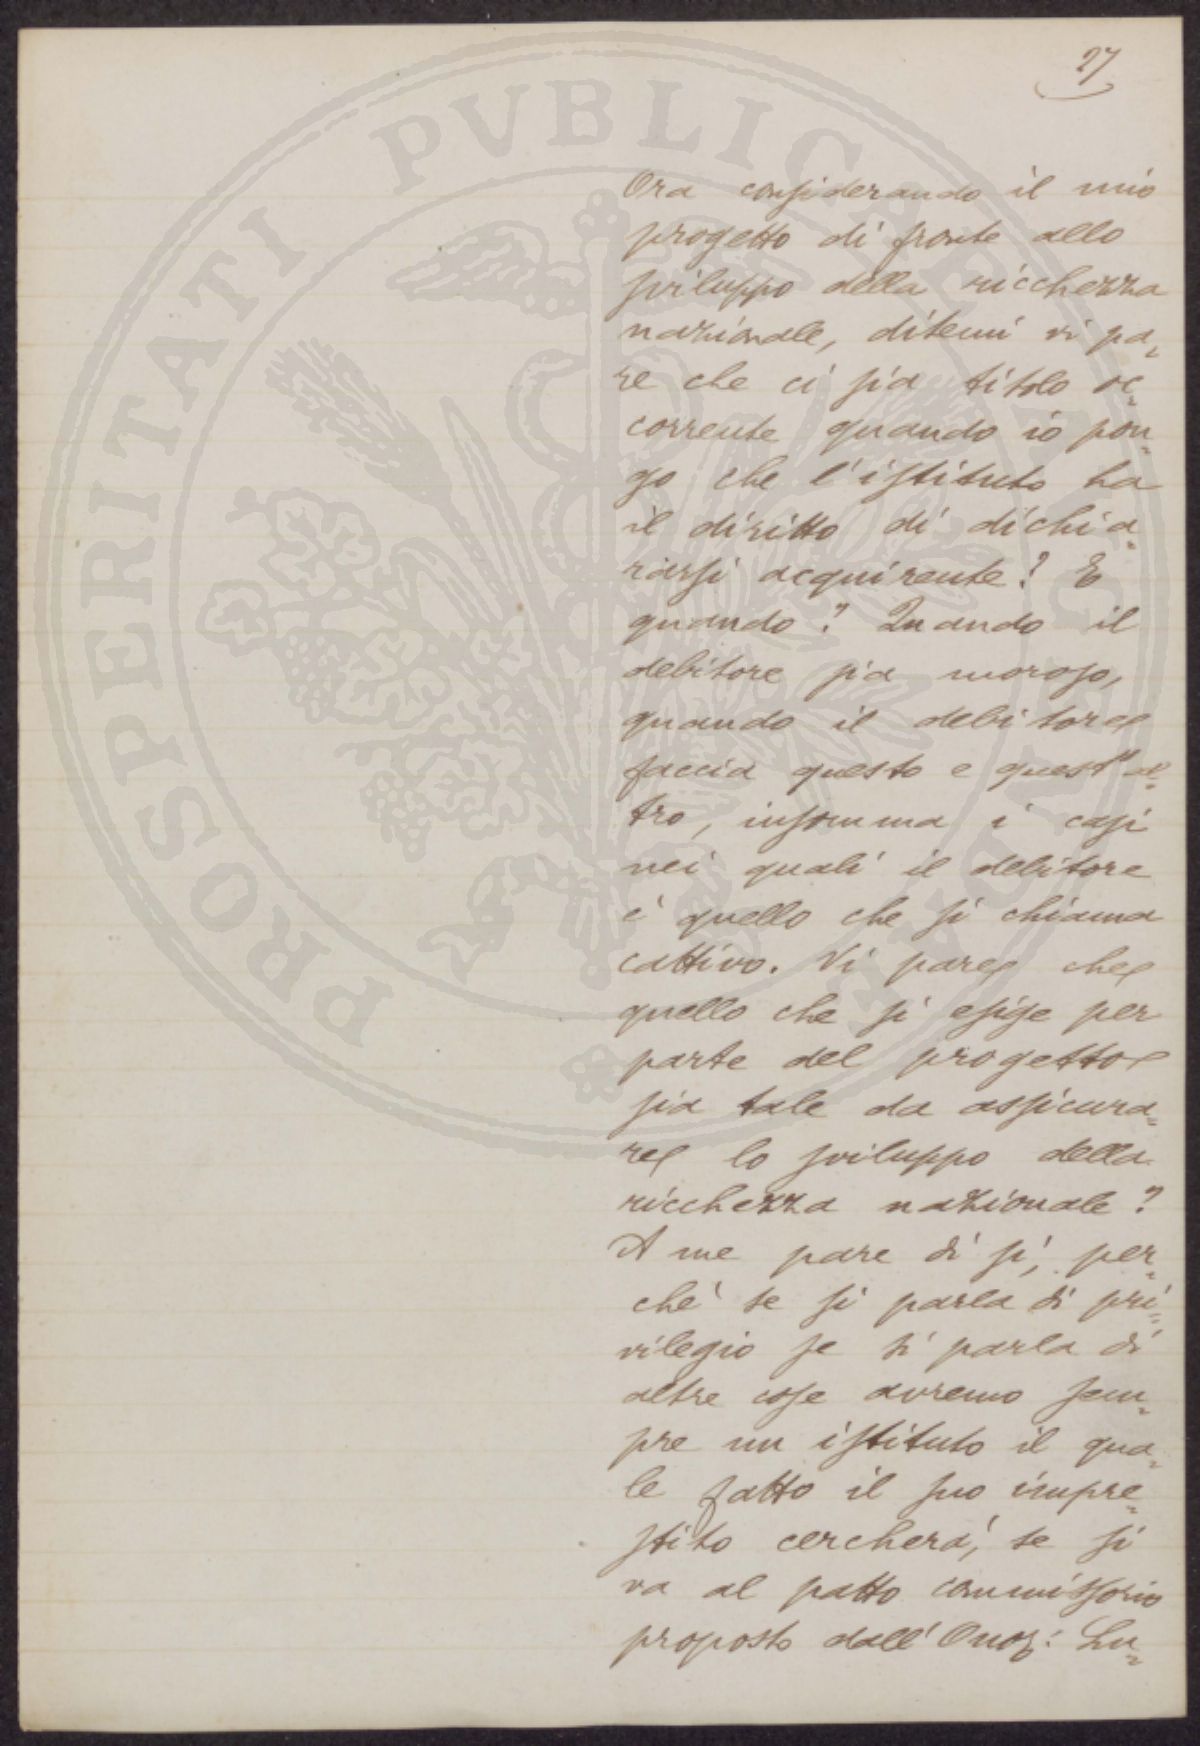 27
Ora considerando il mio
progetto di fronte allo
sviluppo della ricchezza
nazionale, ditemi vi pa=
re che ci sia titolo oc=
corrente quando io pon=
go che l'istituto ha
il diritto di dichia=
rarsi acquirente? E
quando? Quando il
debitore sia moroso,
quando il debitore
faccia questo e quest'al=
tro, insomma i casi
nei quali il debitore
è quello che si chiama
cattivo. Vi pare che
quello che si esige per
parte del progetto
sia tale da assicura=
re lo sviluppo della
ricchezza nazionale?
A me pare di sì, per=
chè se si parla di pri=
vilegio se si parla di
altre cose avremo sem=
pre un istituto il qua=
le fatto il suo impre=
stito cercherà, se si
va al patto commissorio
proposto dall'Onor: Lu=
PROSPERITATI PVBLICAE